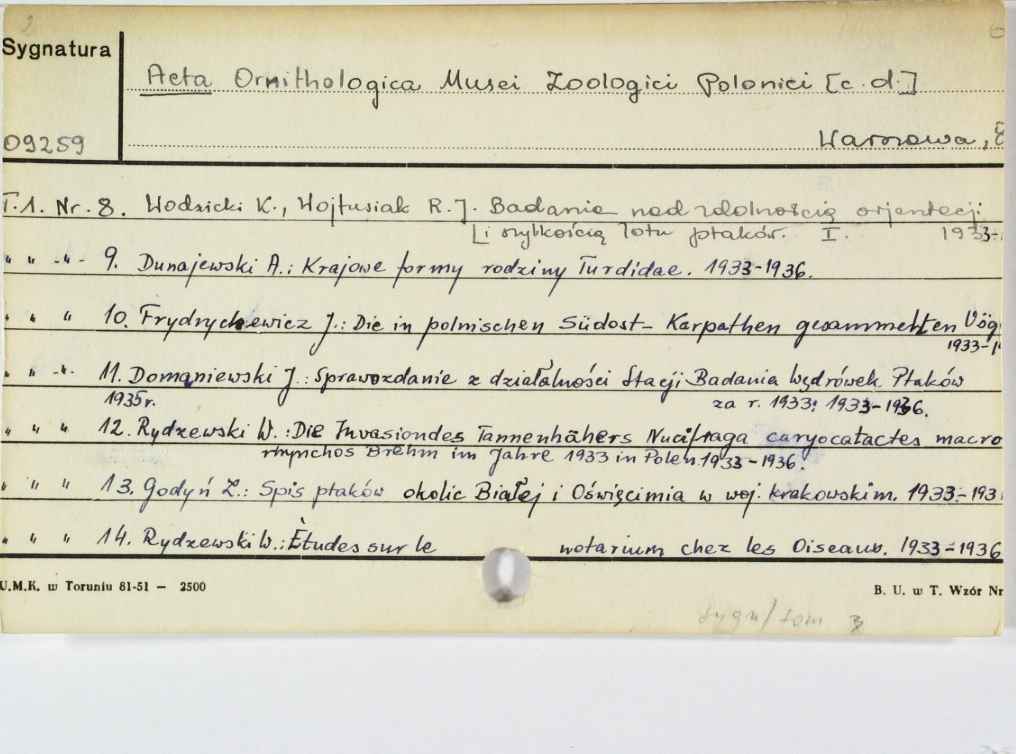 2
Sygnatura
Acta Ornithologica Musei Zoologici Polonici [c.d.]
09259
Warszawa,
T.1. Nr. 8. Wodzicki K., Wojtusiak R.J. Badania nad zdolnością orjentacji
[i szybkością lotu ptaków. I. 1933-
" " -"- 9. Dunajewski A.: Krajowe formy rodziny Turdidae. 1933-1936.
" " " 10. Frydrychewicz J.: Die in polnischen Südost- Karpathen gesammelten Vög
1933-1
" " -"- 11. Domaniewski J.: Sprawozdanie z działalności Stacji Badania Wędrówek Ptaków
1935r. za r. 1933. 1933-1936.
" " " 12. Rydzewski W.: Die Invasion des Tannenhähers Nucifraga caryocatactes macro
rhynchos Brehm im Jahre 1933 in Polen 1933-1936.
" " " 13. Godyń Z.: Spis ptaków okolic Białej i Oświęcimia w woj. krakowskim. 1933-193
" " " 14. Rydzewski W.: Études sur le notarium chez les Oiseaux. 1933-1936
U.M.K. w Toruniu 81-51 — 2500
B. U. w T. Wzór Nr
sygn/tom